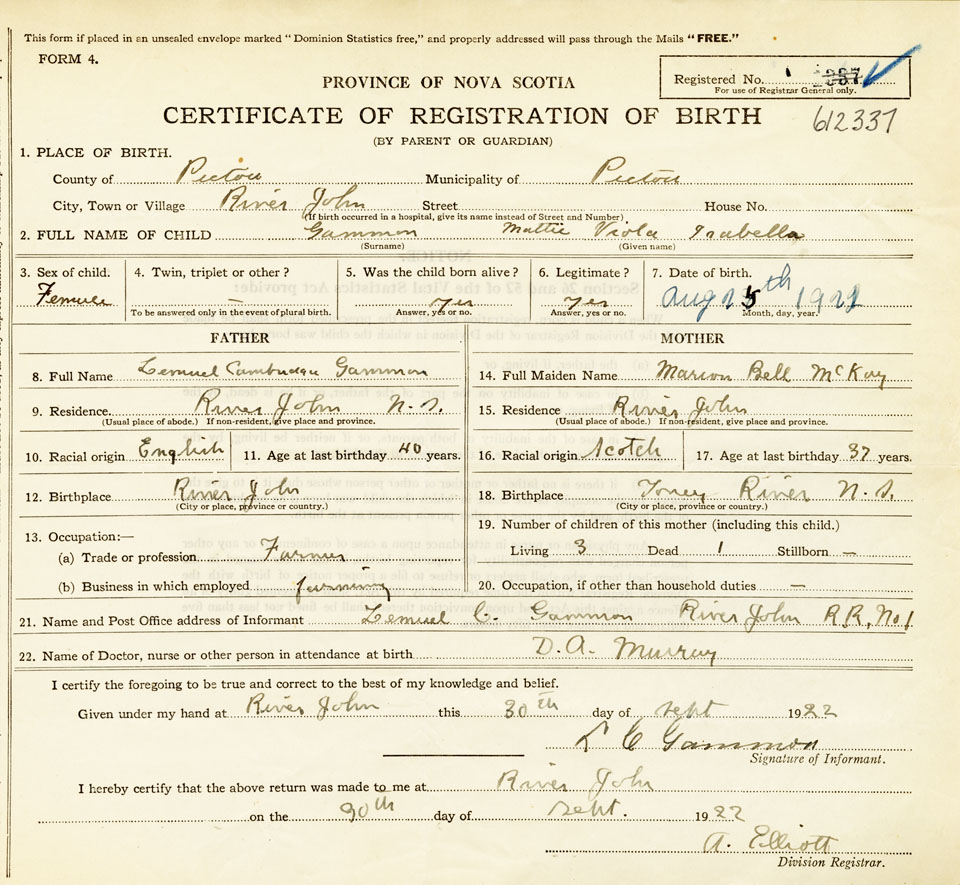 This form if placed in an unsealed envelope marked "Dominion Statistics free," and properly addressed will pass through the Mails "FREE."
FORM 4.
PROVINCE OF NOVA SCOTIA
Registered No.
For use of Registrar General only.
CERTIFICATE OF REGISTRATION OF BIRTH
612337
(BY PARENT OR GUARDIAN)
1. PLACE OF BIRTH.
County of Pictou Municipality of Pictou
City, Town or Village River John Street House No.
(If birth occurred in a hospital, give its name instead of Street and Number)
2. FULL NAME OF CHILD Gammon Mattie Viola Isabella
(Surname) (Given name)
3. Sex of child. 4. Twin, triplet or other? 5. Was the child born alive? 6. Legitimate? 7. Date of birth.
Female — Yes Yes Aug 15th
To be answered only in the event of plural birth. Answer, yes or no. Answer, yes or no. Month, day, year.
FATHER
8. Full Name Lemuel Gammon
9. Residence River John N.S.
(Usual place of abode.) If non-resident, give place and province.
10. Racial origin English 11. Age at last birthday 40 years.
12. Birthplace River John
(City or place, province or country.)
13. Occupation:—
(a) Trade or profession Farmer
(b) Business in which employed farming
MOTHER
14. Full Maiden Name Marion Bell McKay
15. Residence River John
(Usual place of abode.) If non-resident, give place and province.
16. Racial origin Scotch 17. Age at last birthday 37 years.
18. Birthplace Toney River N.S.
(City or place, province or country.)
19. Number of children of this mother (including this child.)
Living 3 Dead 1 Stillborn —
20. Occupation, if other than household duties —
21. Name and Post Office address of Informant Lemuel C. Gammon River John R.R. No 1
22. Name of Doctor, nurse or other person in attendance at birth D.A. Murray
I certify the foregoing to be true and correct to the best of my knowledge and belief.
Given under my hand at River John this 30th day of Sept 1922
L C Gammon
Signature of Informant.
I hereby certify that the above return was made to me at River John
on the 30th day of Sept. 1922
A. Elliott
Division Registrar.